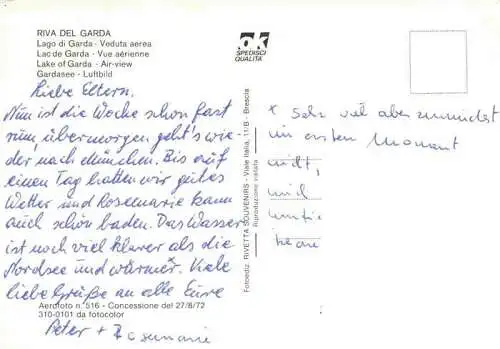 RIVA DEL GARDA
Lago di Garda - Veduta aerea
Lac de Garda - Vue aérienne
Lake of Garda - Air-view
Gardasee - Luftbild
OK
SPEDISCI
QUALITÀ
Liebe Eltern.
Nun ist die Woche schon fast
rum, übermorgen geht's wie-
der nach München. Bis auf
einen Tag hatten wir gutes
Wetter und Rosemarie kann
auch schön baden. Das Wasser
ist noch viel klarer als die
Nordsee und wärmer*. Viele
liebe Grüße an alle Eure
Peter + Rosemarie
Aerofoto n. 516 - Concessione del 27/8/72
310-0101 da fotocolor
Fotoediz. RIVETTA SOUVENIRS - Viale Italia, 11/B - Brescia
Riproduzione vietata
* Sehr viel aber zumindest
im ersten Moment
nicht,
und